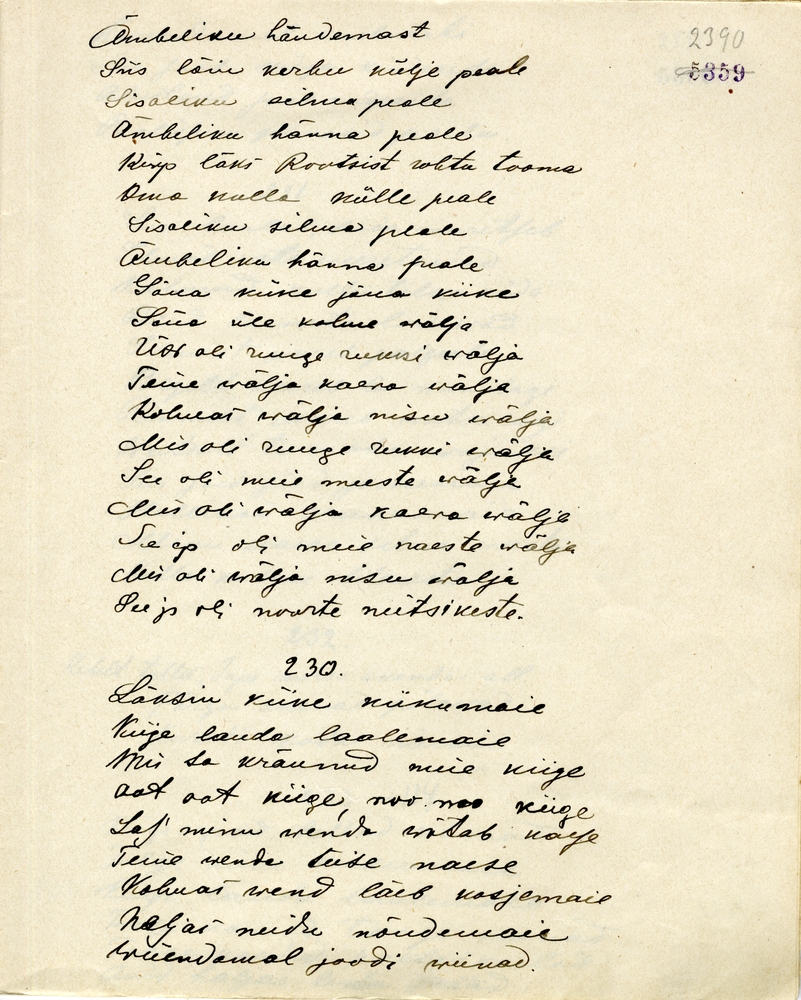 2390
5359
Ämbeliku händemast
Siis lõin kerbu külje peale
Sisaliku silma peale
Ämbeliku hänna peale
Kirp läks Rootsist rohtu tooma
Oma kulla külle peale
Sisaliku silma peale
Ämbeliku hänna peale
Sõua kiike jõua kiike
Sõua üle kolme wälja
Üks oli ruuge rukki wälja
Teine wälja kaera wälja
Kolmas wälja nisu wälja
Mis oli ruuge rukki wälja
See oli meie meeste wälja
Mis oli wälja kaera wälja
See jo oli meie naeste wälja
Mis oli wälja nisu wälja
See jo oli noorte neitsikeste.
230.
Läksin kiike kiikumaie
Kiige lauda laalemaie
Mis sa kräunud meie kiige
oot oot kiige, noo noo kiige
Las' minu wenda wõtab naese
Teine wenda teise naese
Kolmas wend läeb kosjemaie
Neljas neidu nõudemaie
wiiendamal joodi wiinad.